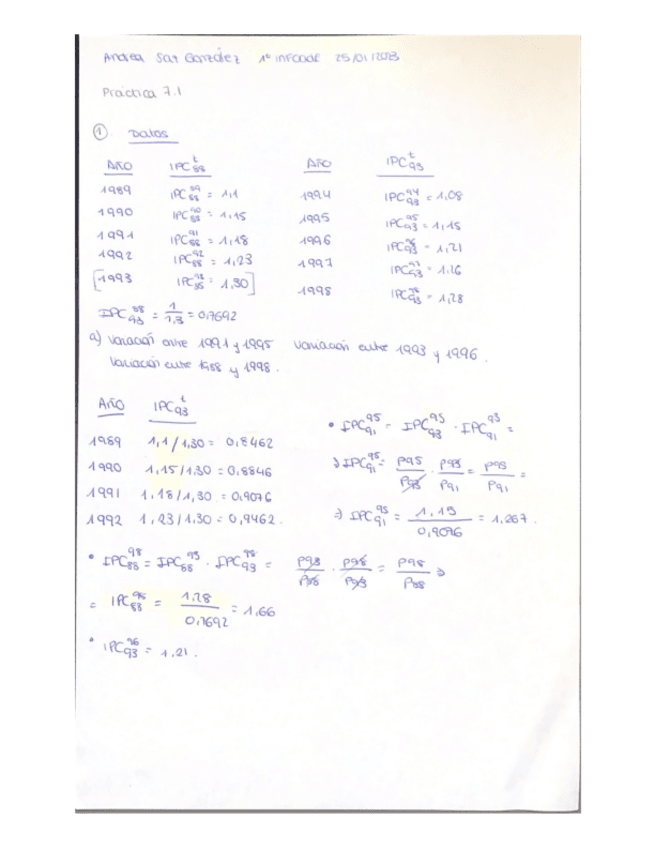 Andrea Sar González 1º INFOADE 25/01/2023
Práctica 7.1
① Datos
AÑO IPC₈₈ᵗ AÑO IPC₉₃ᵗ
1989 IPC₈₈⁸⁹ = 1,1 1994 IPC₉₃⁹⁴ = 1,08
1990 IPC₈₈⁹⁰ = 1,15 1995 IPC₉₃⁹⁵ = 1,15
1991 IPC₈₈⁹¹ = 1,18 1996 IPC₉₃⁹⁶ = 1,21
1992 IPC₈₈⁹² = 1,23 1997 IPC₉₃⁹⁷ = 1,26
[1993 IPC₈₈⁹³ = 1,30] 1998 IPC₉₃⁹⁸ = 1,28
IPC₉₃⁸⁸ = 1/1,3 = 0,7692
a) Variación entre 1991 y 1995 Variación entre 1993 y 1996.
Variación entre 1988 y 1998.
AÑO IPC₉₃ᵗ
1989 1,1/1,30 = 0,8462
1990 1,15/1,30 = 0,8846
1991 1,18/1,30 = 0,9076
1992 1,23/1,30 = 0,9462.
• IPC₉₁⁹⁵ = IPC₉₃⁹⁵ · IPC₉₁⁹³ =
⇒ IPC₉₁⁹⁵ = P95/P93 · P93/P91 = P95/P91 =
⇒ IPC₉₁⁹⁵ = 1,15/0,9076 = 1,267.
• IPC₈₈⁹⁸ = IPC₈₈⁹³ · IPC₉₃⁹⁸ = P93/P88 · P98/P93 = P98/P88 ⇒
= IPC₈₈⁹⁸ = 1,28/0,7692 = 1,66
• IPC₉₃⁹⁶ = 1,21.